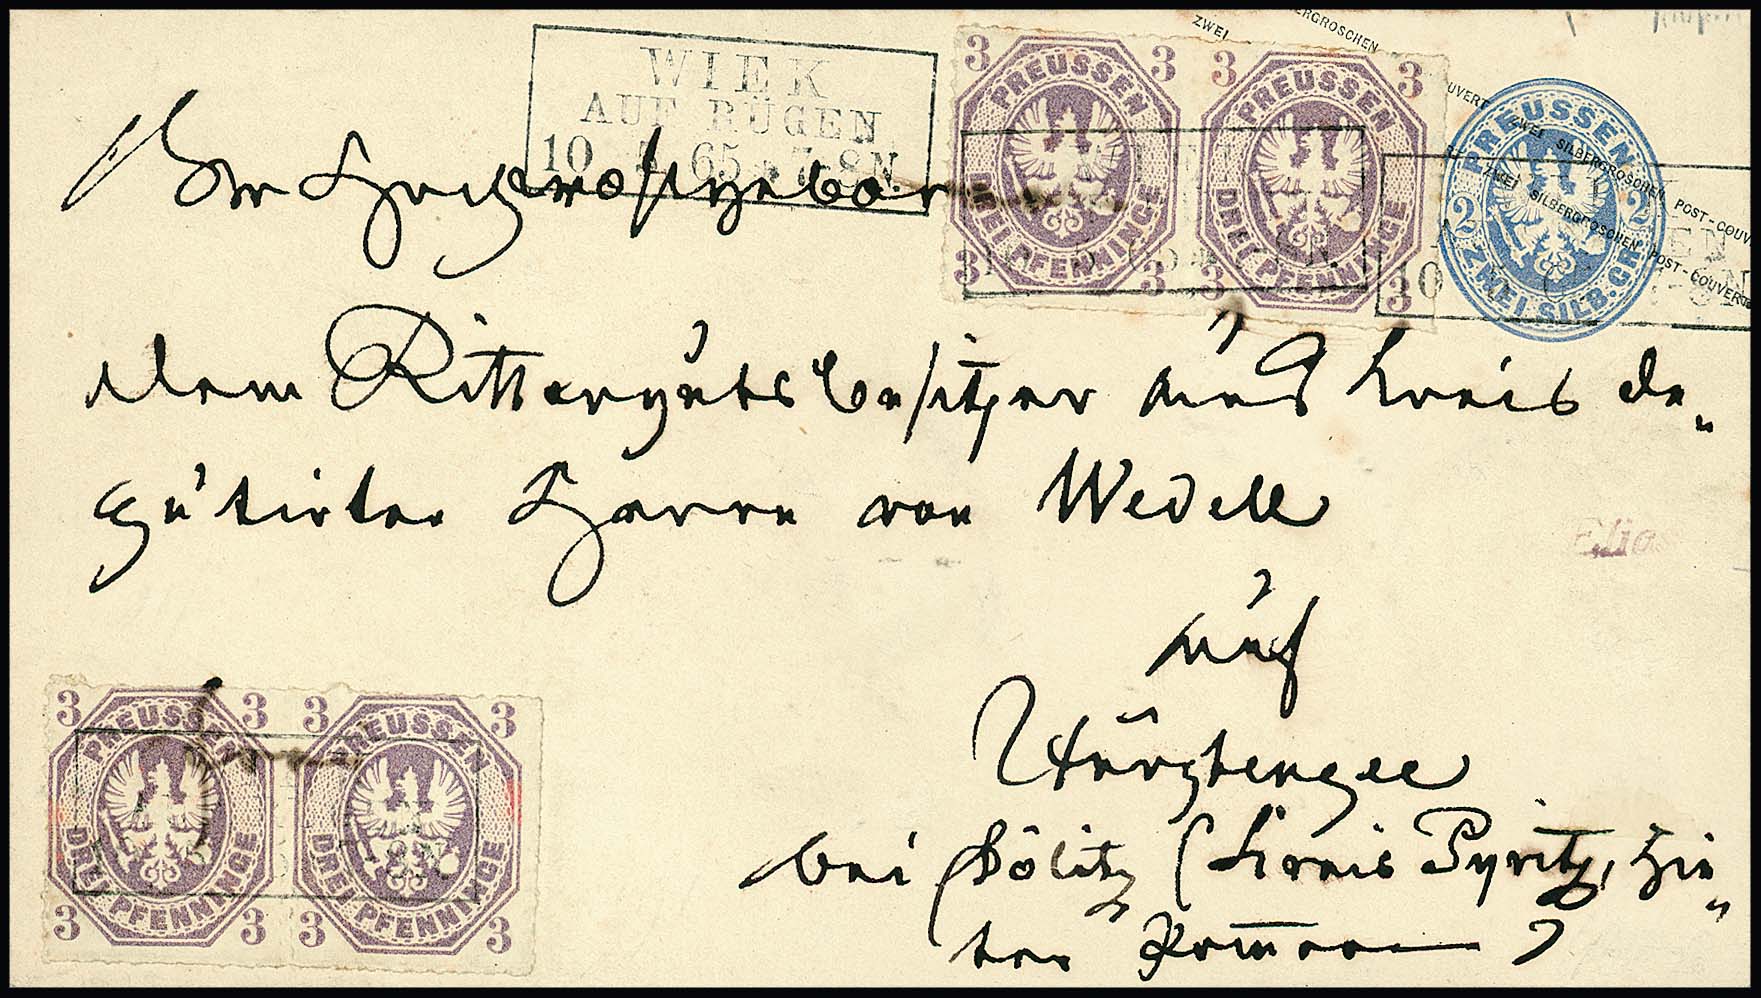 WIEK
AUF RÜGEN
10 5 65 * 7-8N.
3 3
PREUSSEN
DREI PFENNINGE
3 3
3 3
PREUSSEN
DREI PFENNINGE
3 3
ZWEI SILBERGROSCHEN POST-COUVERT
ZWEI SILBERGROSCHEN POST-COUVERT
PREUSSEN
2 2
ZWEI SILB. GR.
Hochgeboren
dem Rittergutsbesitzer und Kreis de„
putirten Herrn von Wedell
auf
bei Dölitz (Kreis Pyritz, Hin„
ter Pommern)
Elias
3 3
PREUSSEN
DREI PFENNINGE
3 3
3 3
PREUSSEN
DREI PFENNINGE
3 3